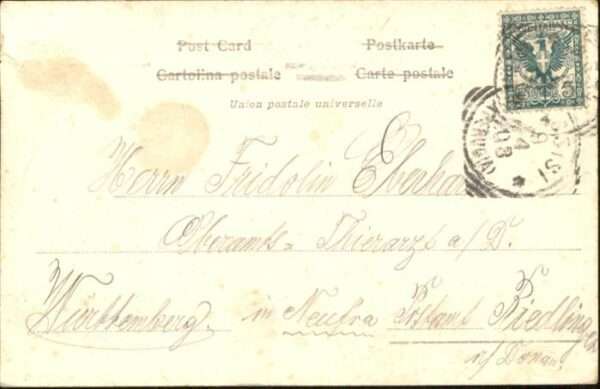 Post Card Postkarte
Cartolina postale Carte postale
Union postale universelle
Herrn Fridolin Eberha
Oberamts-Thierarzt a/D.
Württemberg. in Neufra Postamt Riedlingen
a/Donau
5
ASSISI